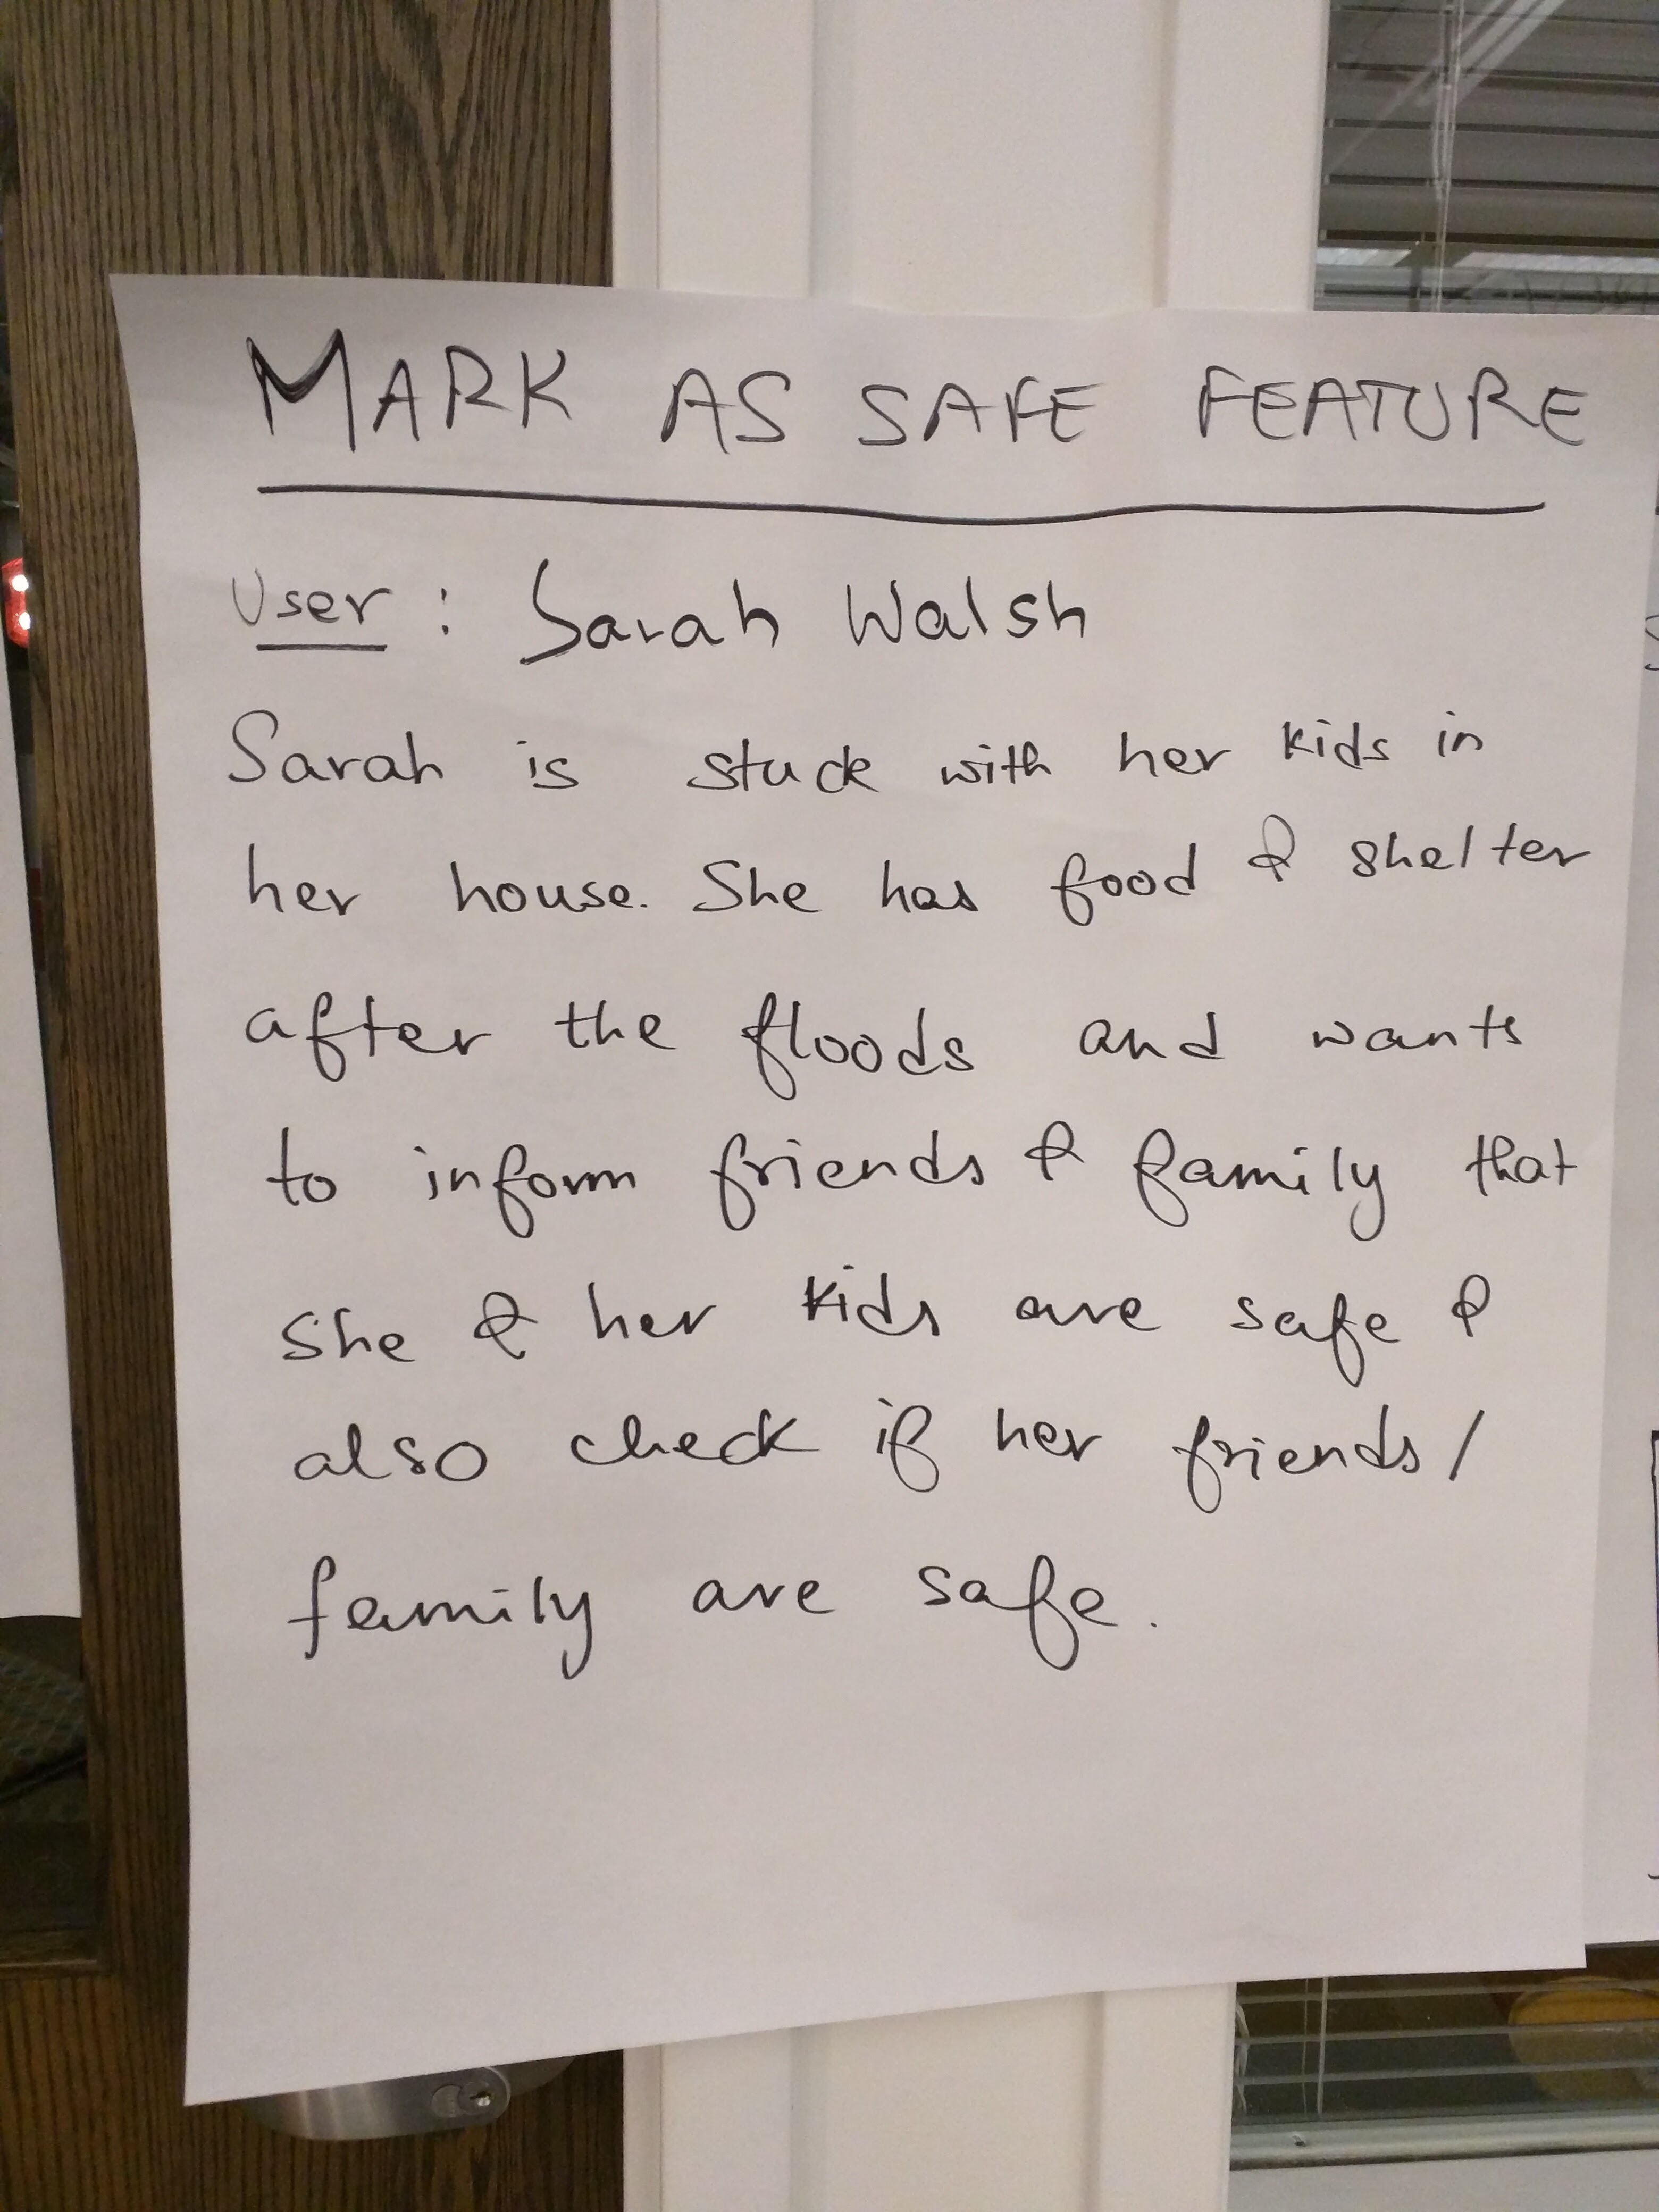 MARK AS SAFE FEATURE
User : Sarah Walsh
Sarah is stuck with her kids in
her house. She has food & shelter
after the floods and wants
to inform friends & family that
she & her kids are safe &
also check if her friends/
family are safe.